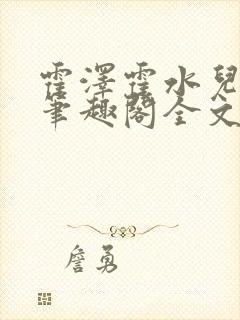 霍澤霍水兒
筆趣閣全文
詹勇